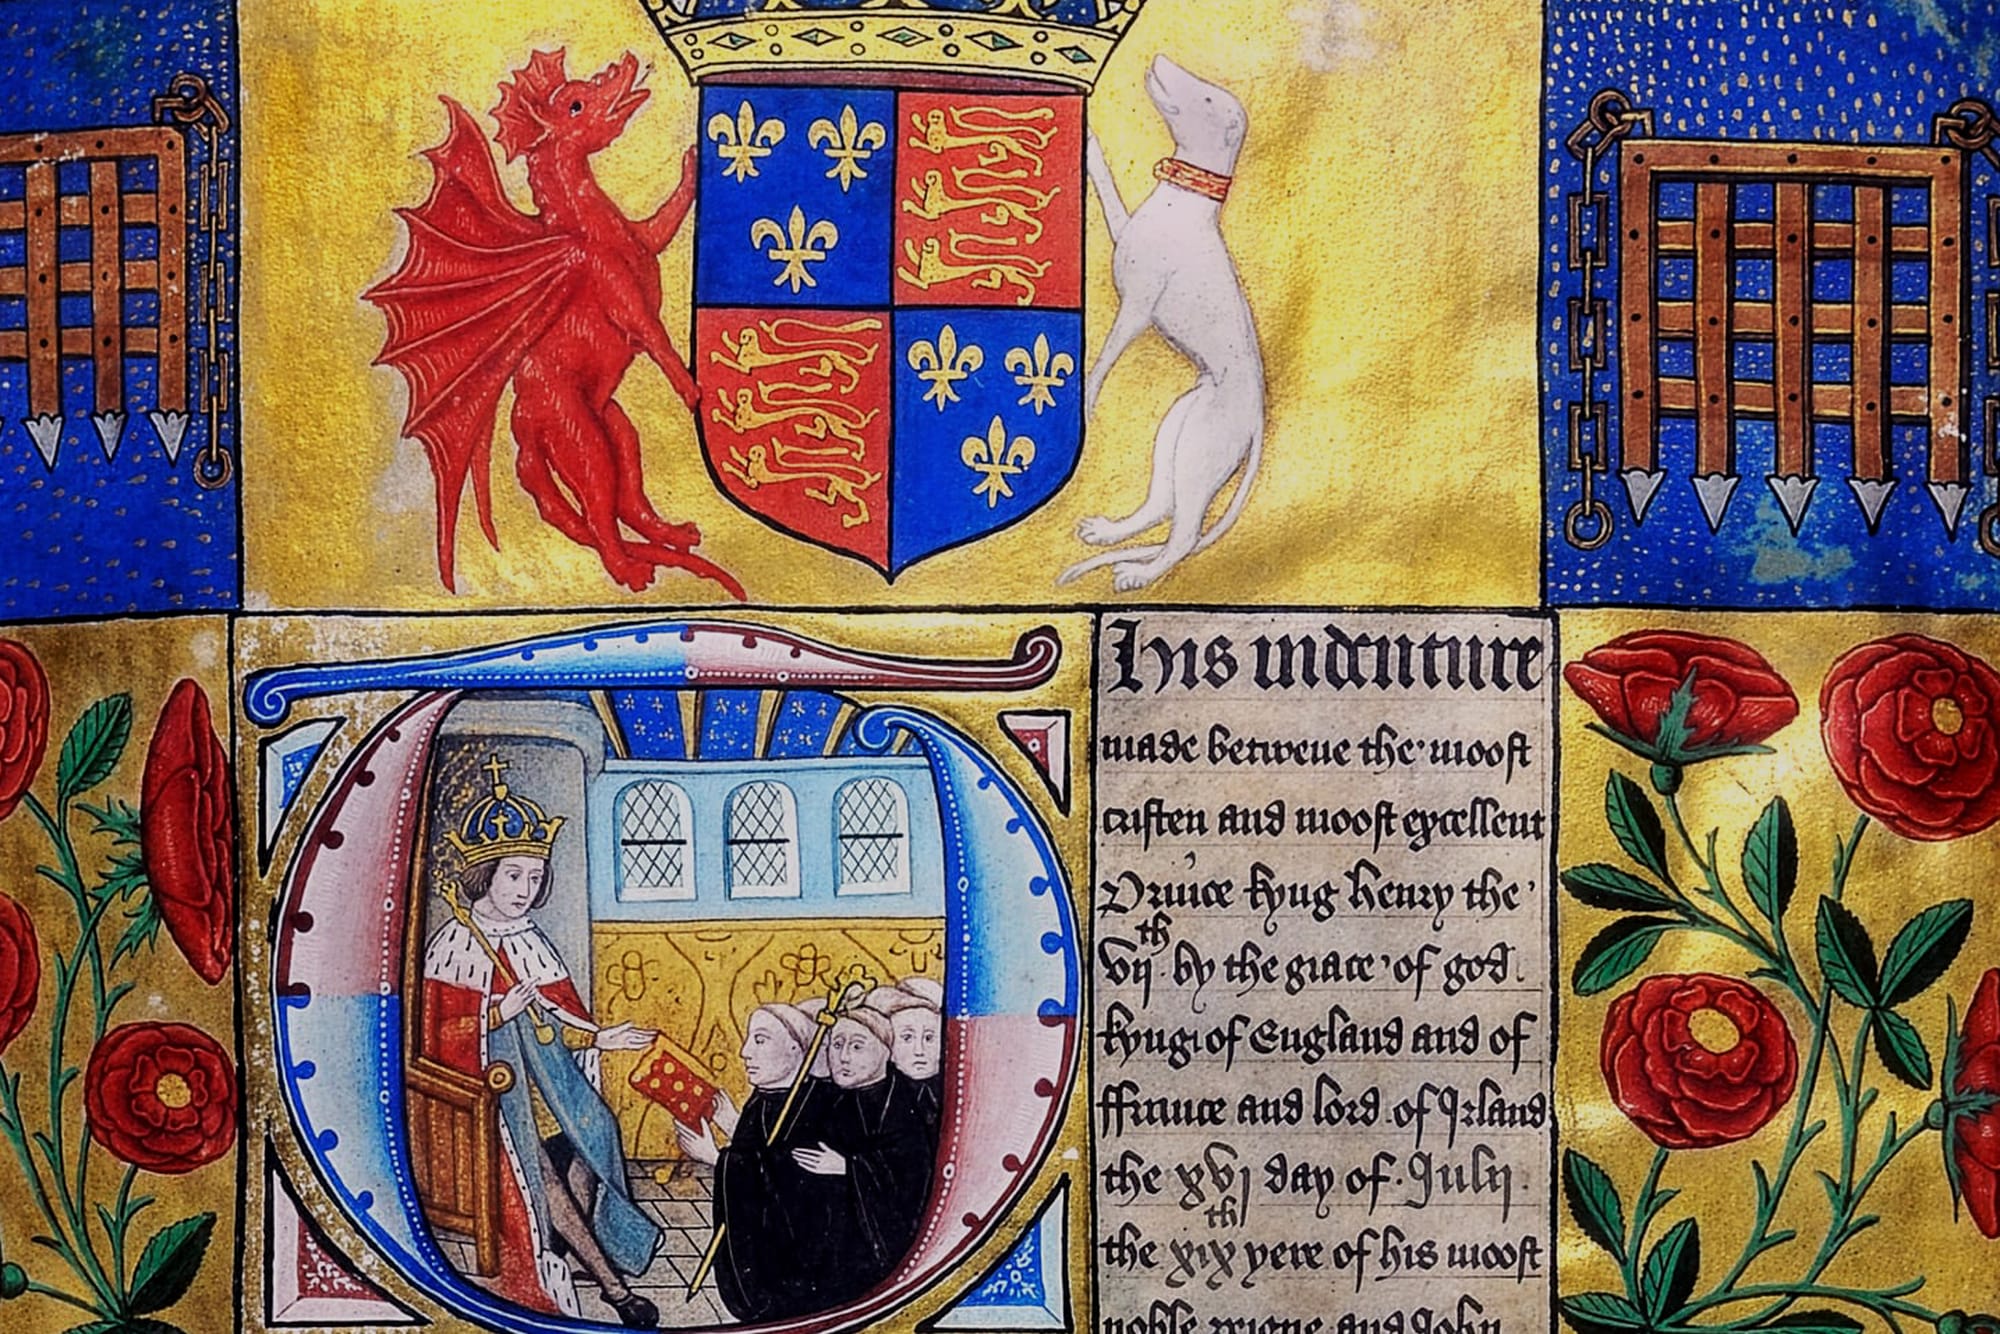 This indenture
made betwene the moost
cristen and moost excellent
Prince kyng henry the
vijth by the grace of god
kyng of England and of
ffraunce and lord of Irland
the xvjth day of Julij
the xixth yere of his moost
noble reigne and John